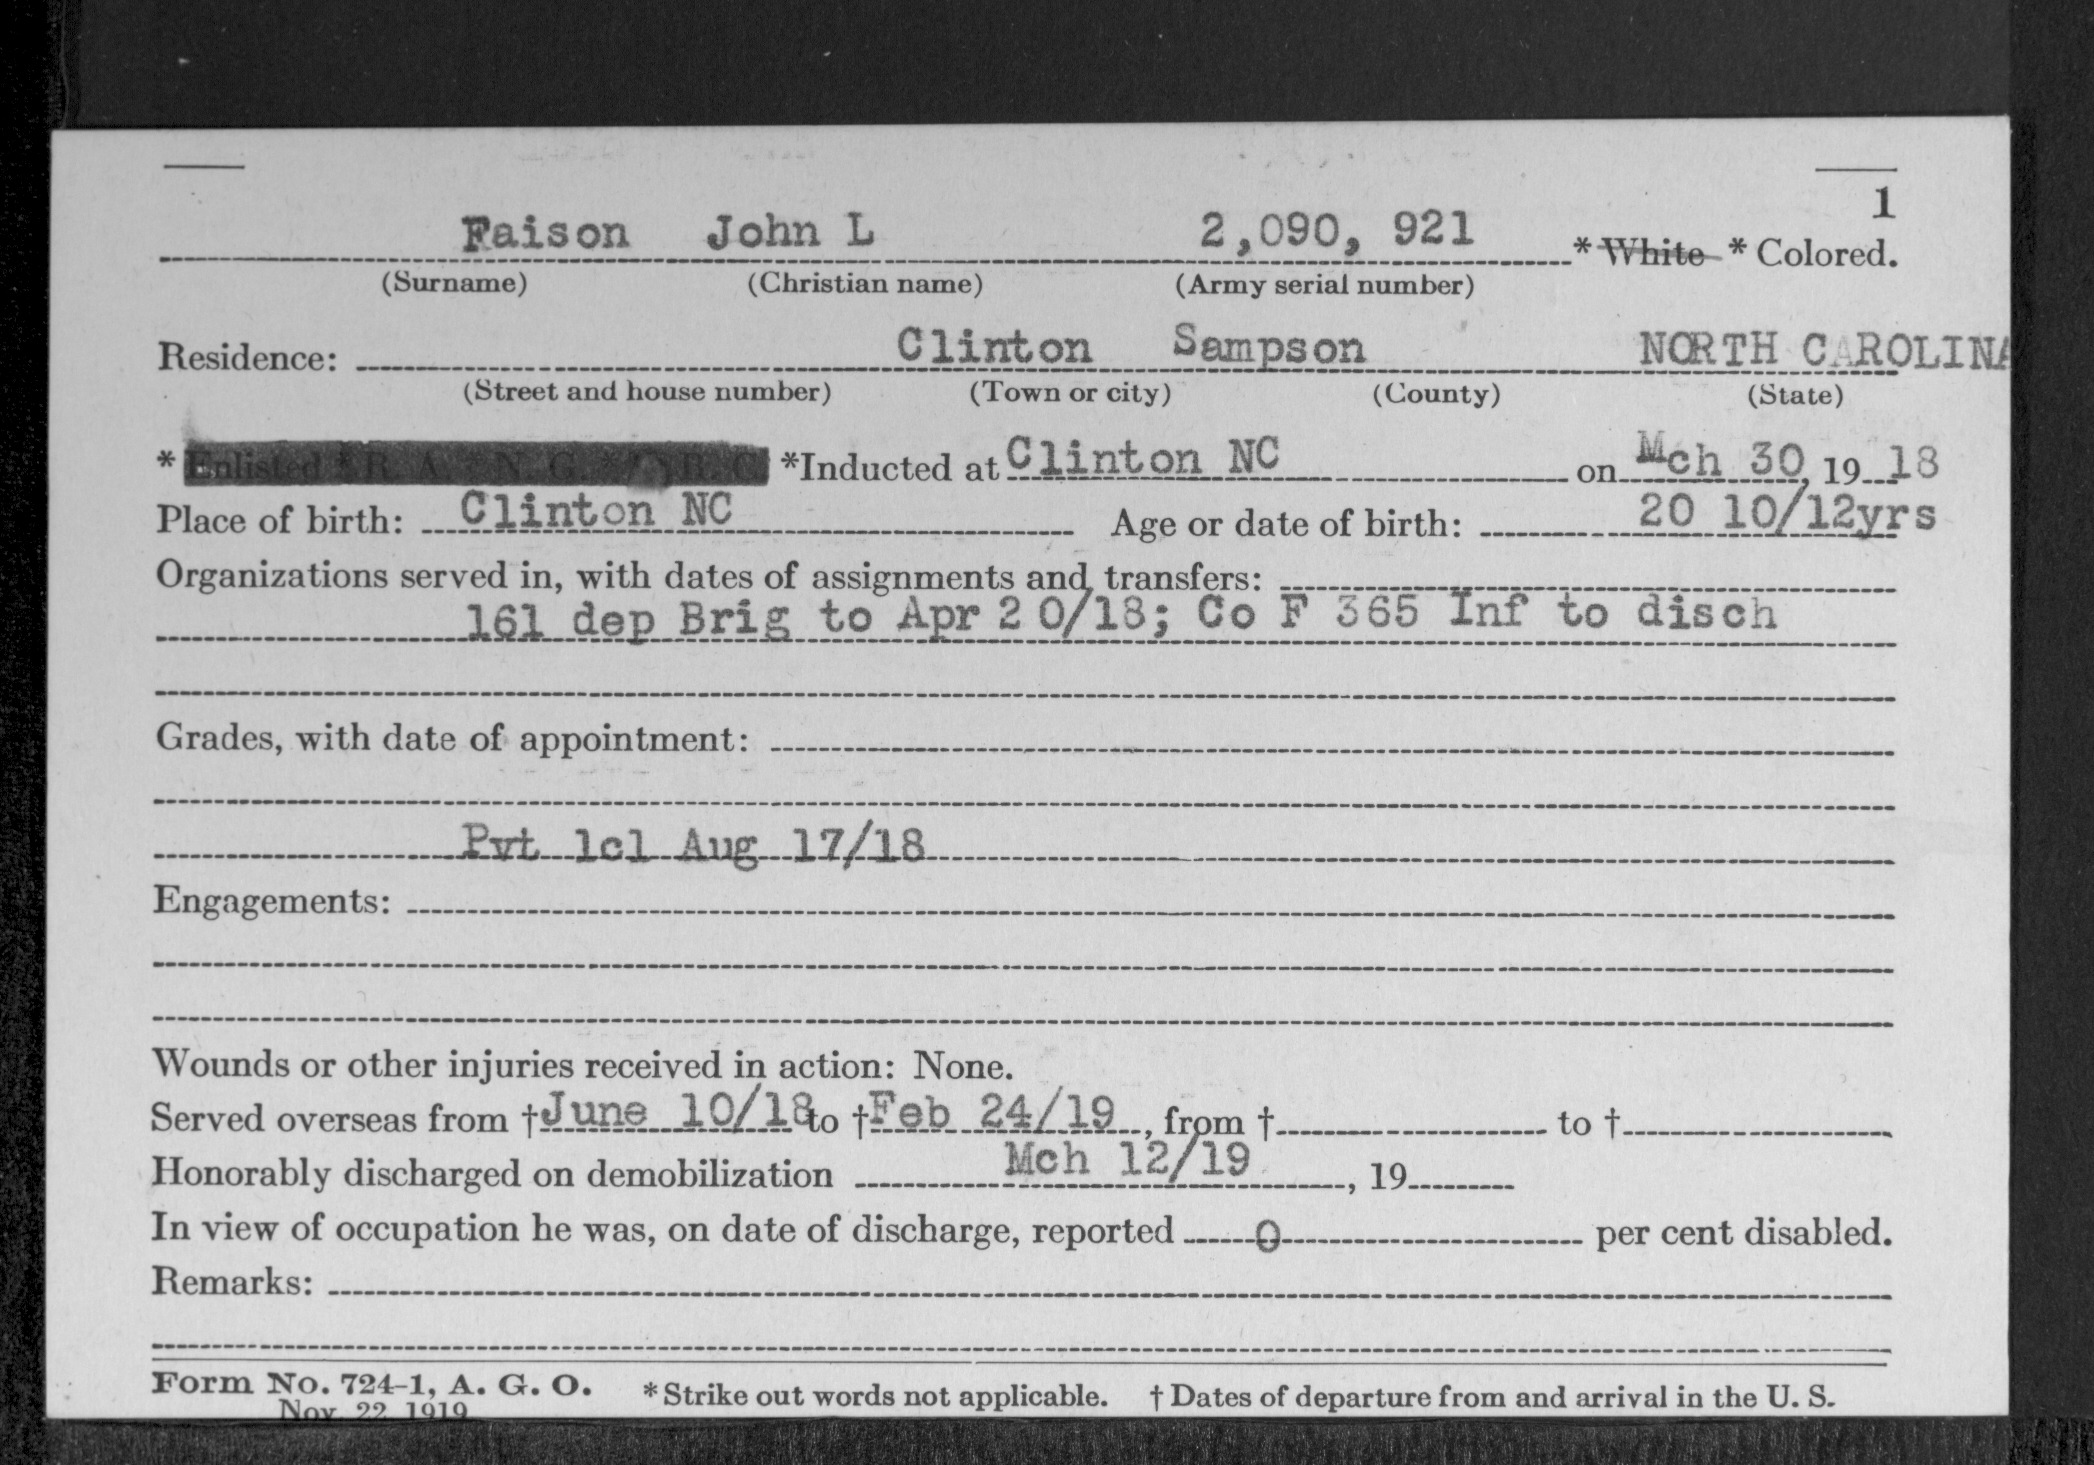 1
Faison John L 2,090, 921 * White * Colored.
(Surname) (Christian name) (Army serial number)
Residence: Clinton Sampson NORTH CAROLINA
(Street and house number) (Town or city) (County) (State)
* Enlisted * R. A. * N. G. * R. C. *Inducted at Clinton NC on Mch 30, 1918
Place of birth: Clinton NC Age or date of birth: 20 10/12yrs
Organizations served in, with dates of assignments and transfers:
161 dep Brig to Apr 20/18; Co F 365 Inf to disch
Grades, with date of appointment:
Pvt 1cl Aug 17/18
Engagements:
Wounds or other injuries received in action: None.
Served overseas from †June 10/18 to †Feb 24/19, from † to †
Honorably discharged on demobilization Mch 12/19, 19
In view of occupation he was, on date of discharge, reported 0 per cent disabled.
Remarks:
Form No. 724-1, A. G. O. *Strike out words not applicable. † Dates of departure from and arrival in the U. S.
Nov. 22, 1919